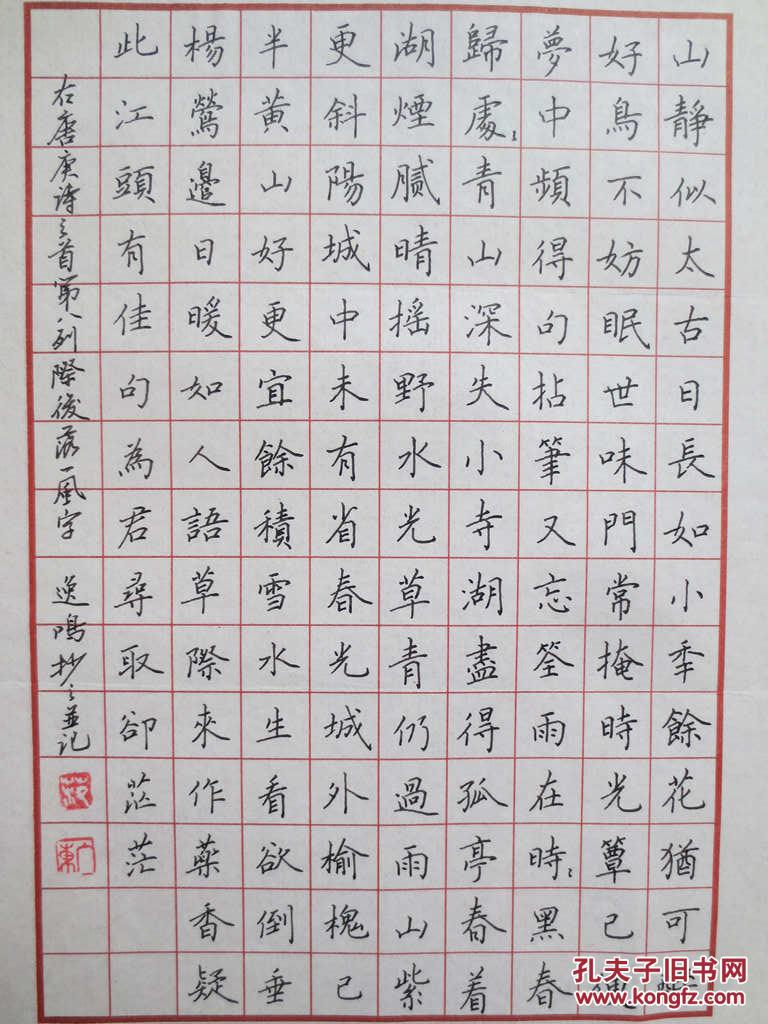 山靜似太古日長如小秊餘花猶可醉
好鳥不妨眠世味門常掩時光簟已便
夢中頻得句拈筆又忘筌雨在時〻黑春
歸處〻青山深失小寺湖盡得孤亭春着
湖煙膩晴摇野水光草青仍過雨山紫
更斜陽城中未有省春光城外榆槐已
半黃山好更宜餘積雪水生看欲倒垂
楊鶯邉日暖如人語草際來作藥香疑
此江頭有佳句為君尋取卻茫茫
右唐庚詩三首第八列際後落一風字 逸鳴抄之並記
广東
孔夫子旧书网
www.kongfz.com